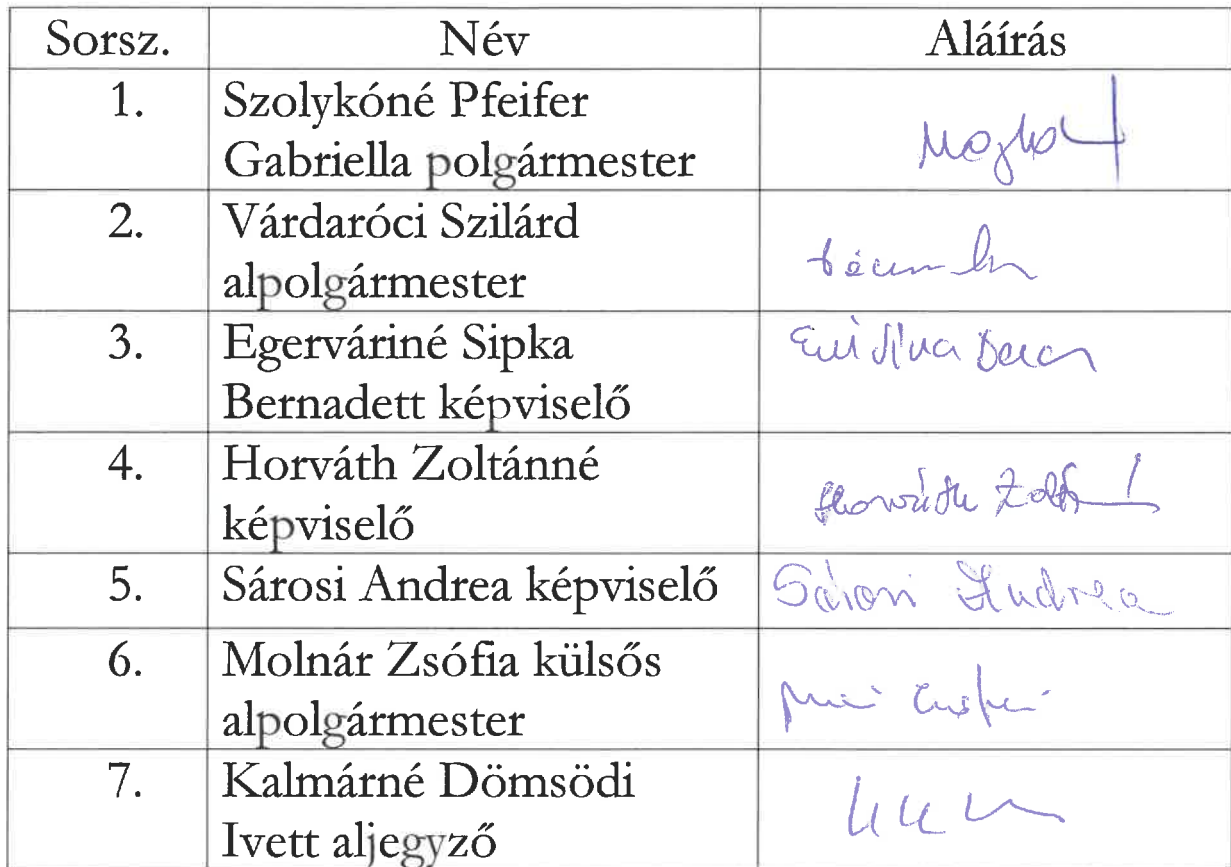 Sorsz. Név Aláírás
1. Szolykóné Pfeifer
Gabriella polgármester
2. Várdaróci Szilárd
alpolgármester
3. Egerváriné Sipka
Bernadett képviselő
4. Horváth Zoltánné
képviselő
Horváth
5. Sárosi Andrea képviselő Sárosi Andrea
6. Molnár Zsófia külsős
alpolgármester
7. Kalmárné Dömsödi
Ivett aljegyző